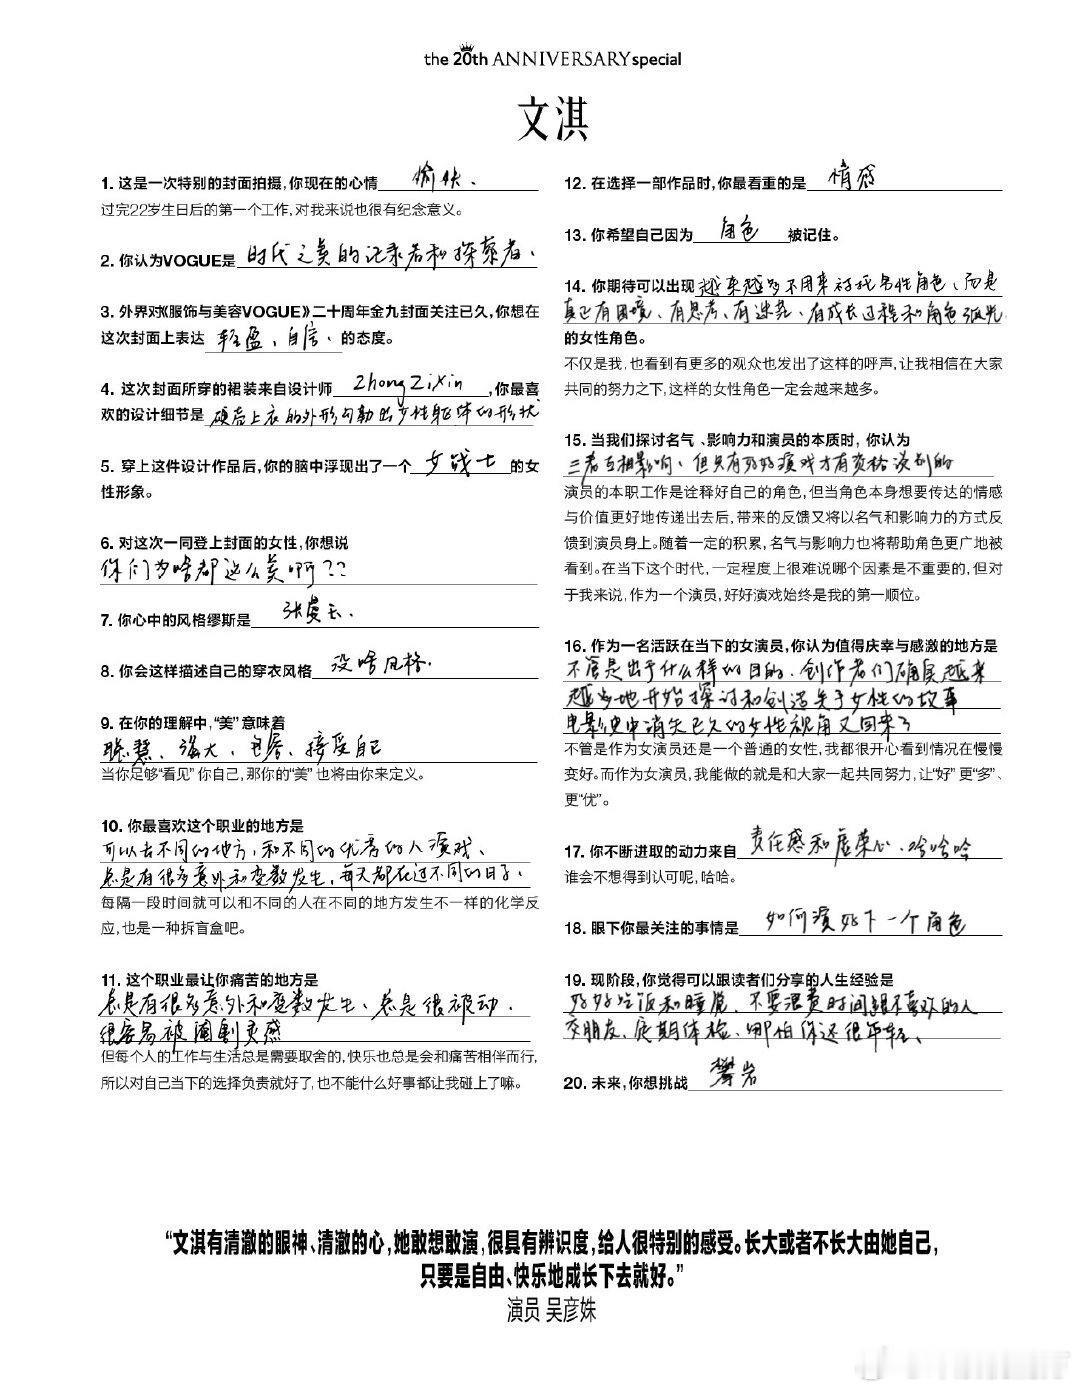 the 20th ANNIVERSARY special
文淇
1. 这是一次特别的封面拍摄,你现在的心情 愉快、
过完22岁生日后的第一个工作,对我来说也很有纪念意义。
2. 你认为VOGUE是 时代之美的记录者和探索者、
3. 外界对《服饰与美容VOGUE》二十周年金九封面关注已久,你想在
这次封面上表达 轻盈、自信、的态度。
4. 这次封面所穿的裙装来自设计师 Zhong Zixin ,你最喜
欢的设计细节是 硬挺上衣的外形勾勒出女性躯体的形状
5. 穿上这件设计作品后,你的脑中浮现出了一个 女战士 的女
性形象。
6. 对这次一同登上封面的女性,你想说
你们为啥都这么美啊??
7. 你心中的风格缪斯是 张曼玉.
8. 你会这样描述自己的穿衣风格 没啥风格.
9. 在你的理解中,“美”意味着
聪慧、强大、包容、接受自己
当你足够“看见”你自己,那你的“美”也将由你来定义。
10. 你最喜欢这个职业的地方是
可以去不同的地方,和不同的优秀的人演戏、
总是有很多意外和变数发生,每天都在过不同的日子.
每隔一段时间就可以和不同的人在不同的地方发生不一样的化学反
应,也是一种拆盲盒吧。
11. 这个职业最让你痛苦的地方是
总是有很多意外和变数发生、总是很被动.
很容易被阉割灵感
但每个人的工作与生活总是需要取舍的,快乐也总是会和痛苦相伴而行,
所以对自己当下的选择负责就好了,也不能什么好事都让我碰上了嘛。
12. 在选择一部作品时,你最看重的是 情感
13. 你希望自己因为 角色 被记住。
14. 你期待可以出现 越来越多不用来衬托男性角色,而是
真正有困境、有思考、有迷茫、有成长过程和角色弧光
的女性角色。
不仅是我,也看到有更多的观众也发出了这样的呼声,让我相信在大家
共同的努力之下,这样的女性角色一定会越来越多。
15. 当我们探讨名气、影响力和演员的本质时, 你认为
三者互相影响、但只有好好演戏才有资格谈别的
演员的本职工作是诠释好自己的角色,但当角色本身想要传达的情感
与价值更好地传递出去后,带来的反馈又将以名气和影响力的方式反
馈到演员身上。随着一定的积累,名气与影响力也将帮助角色更广地被
看到。在当下这个时代,一定程度上很难说哪个因素是不重要的,但对
于我来说,作为一个演员,好好演戏始终是我的第一顺位。
16. 作为一名活跃在当下的女演员,你认为值得庆幸与感激的地方是
不管是出于什么样的目的、创作者们确实越来
越多地开始探讨和创造关于女性的故事
电影史中消失已久的女性视角又回来了
不管是作为女演员还是一个普通的女性,我都很开心看到情况在慢慢
变好。而作为女演员,我能做的就是和大家一起共同努力,让“好”更“多”、
更“优”。
17. 你不断进取的动力来自 责任感和虚荣心、哈哈哈
谁会不想得到认可呢,哈哈。
18. 眼下你最关注的事情是 如何演好下一个角色
19. 现阶段,你觉得可以跟读者们分享的人生经验是
好好吃饭和睡觉、不要浪费时间跟不喜欢的人
交朋友、定期体检、哪怕你还很年轻、
20. 未来,你想挑战 攀岩
“文淇有清澈的眼神、清澈的心,她敢想敢演,很具有辨识度,给人很特别的感受。长大或者不长大由她自己,
只要是自由、快乐地成长下去就好。”
演员 吴彦姝